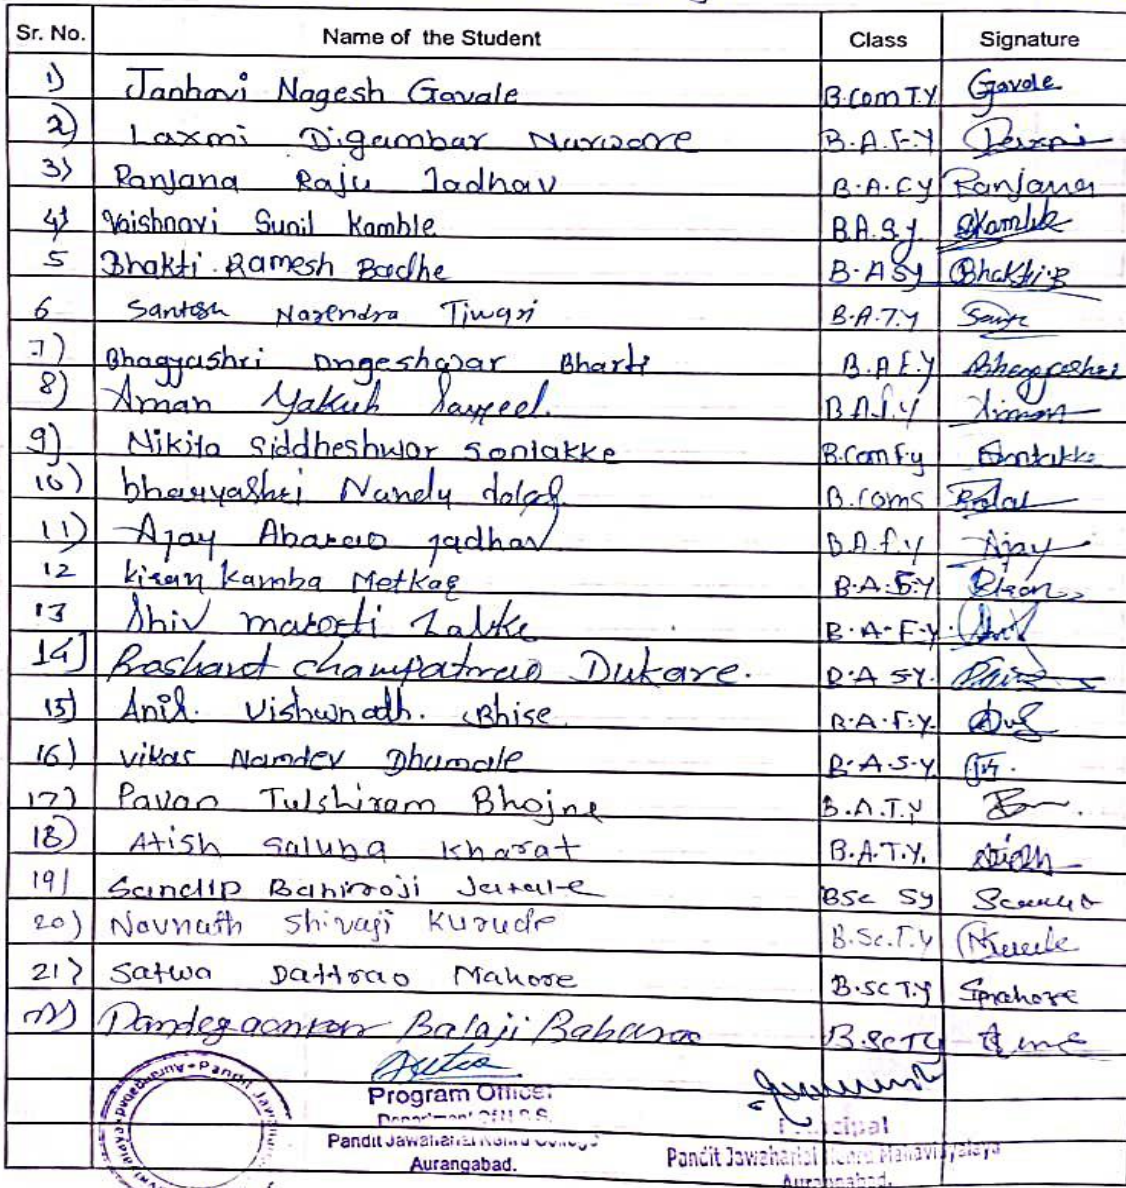 Sr. No. Name of the Student Class Signature
1) Janhavi Nagesh Gavale B.Com T.Y Gavale
2) Laxmi Digambar Narware B.A.F.Y Laxmi
3) Ranjana Raju Jadhav B.A.F.Y Ranjana
4) Vaishnavi Sunil Kamble B.A.S.y. SKamble
5 Bhakti Ramesh Badhe B.A Sy Bhakti.B
6 Santosh Narendra Tiwari B.A.T.Y
7) Bhagyashri Dngeshwar Bharti B.A F.y Bhagyashri
8) Aman Yakub Sayyed. B.A.F.Y Aman
9) Nikita Siddheshwar Sontakke B.Com F.y Sontakke
10) bhagyashri Nandu dalal B.Com S Dalal
11) Ajay Abarao Jadhav B.A.F.Y Ajay
12 kiran Kamba Metkar B.A.F.Y Kiran
13 Shiv maroti B.A.F.Y.
14) Prashant champatrao Dukare. B.A SY.
15) Anil. Vishwnath. Bhise B.A.F.Y.
16) Vikas Namdev Dhumale B.A.S.Y
17) Pavan Tulshiram Bhojne B.A.T.Y
18) Atish Saluba Kharat B.A.T.Y. Atish
19) Sandip Bahiroji BSc Sy
20) Navnath Shivaji Kurude B.Sc.T.Y NKurude
21) Satwa Dattrao Mahore B.SC T.Y Smahore
Balaji B.Sc TY
Program Officer
Department Of N.S.S. Principal
Pandit Jawaharlal Nehru College Pandit Jawaharlal Nehru Mahavidyalaya
Aurangabad. Aurangabad.